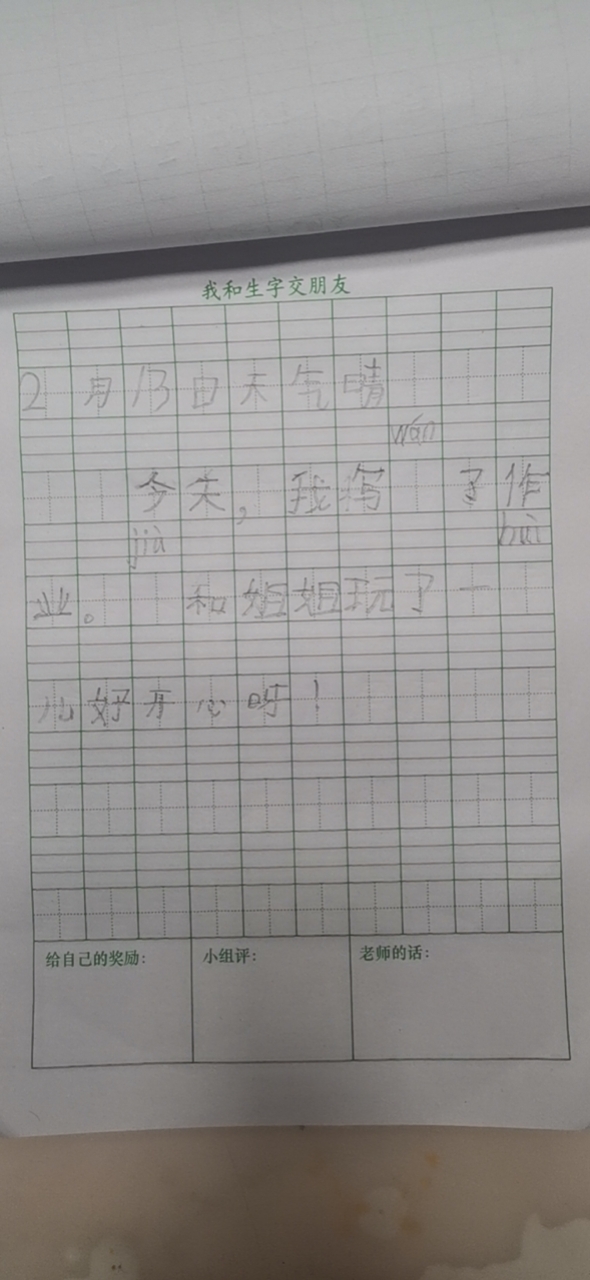 我和生字交朋友
2月13日天气晴
wán
今天,我写 了作
jiù huì
业。 和姐姐玩了一
儿好开心呀!
给自己的奖励: 小组评: 老师的话: